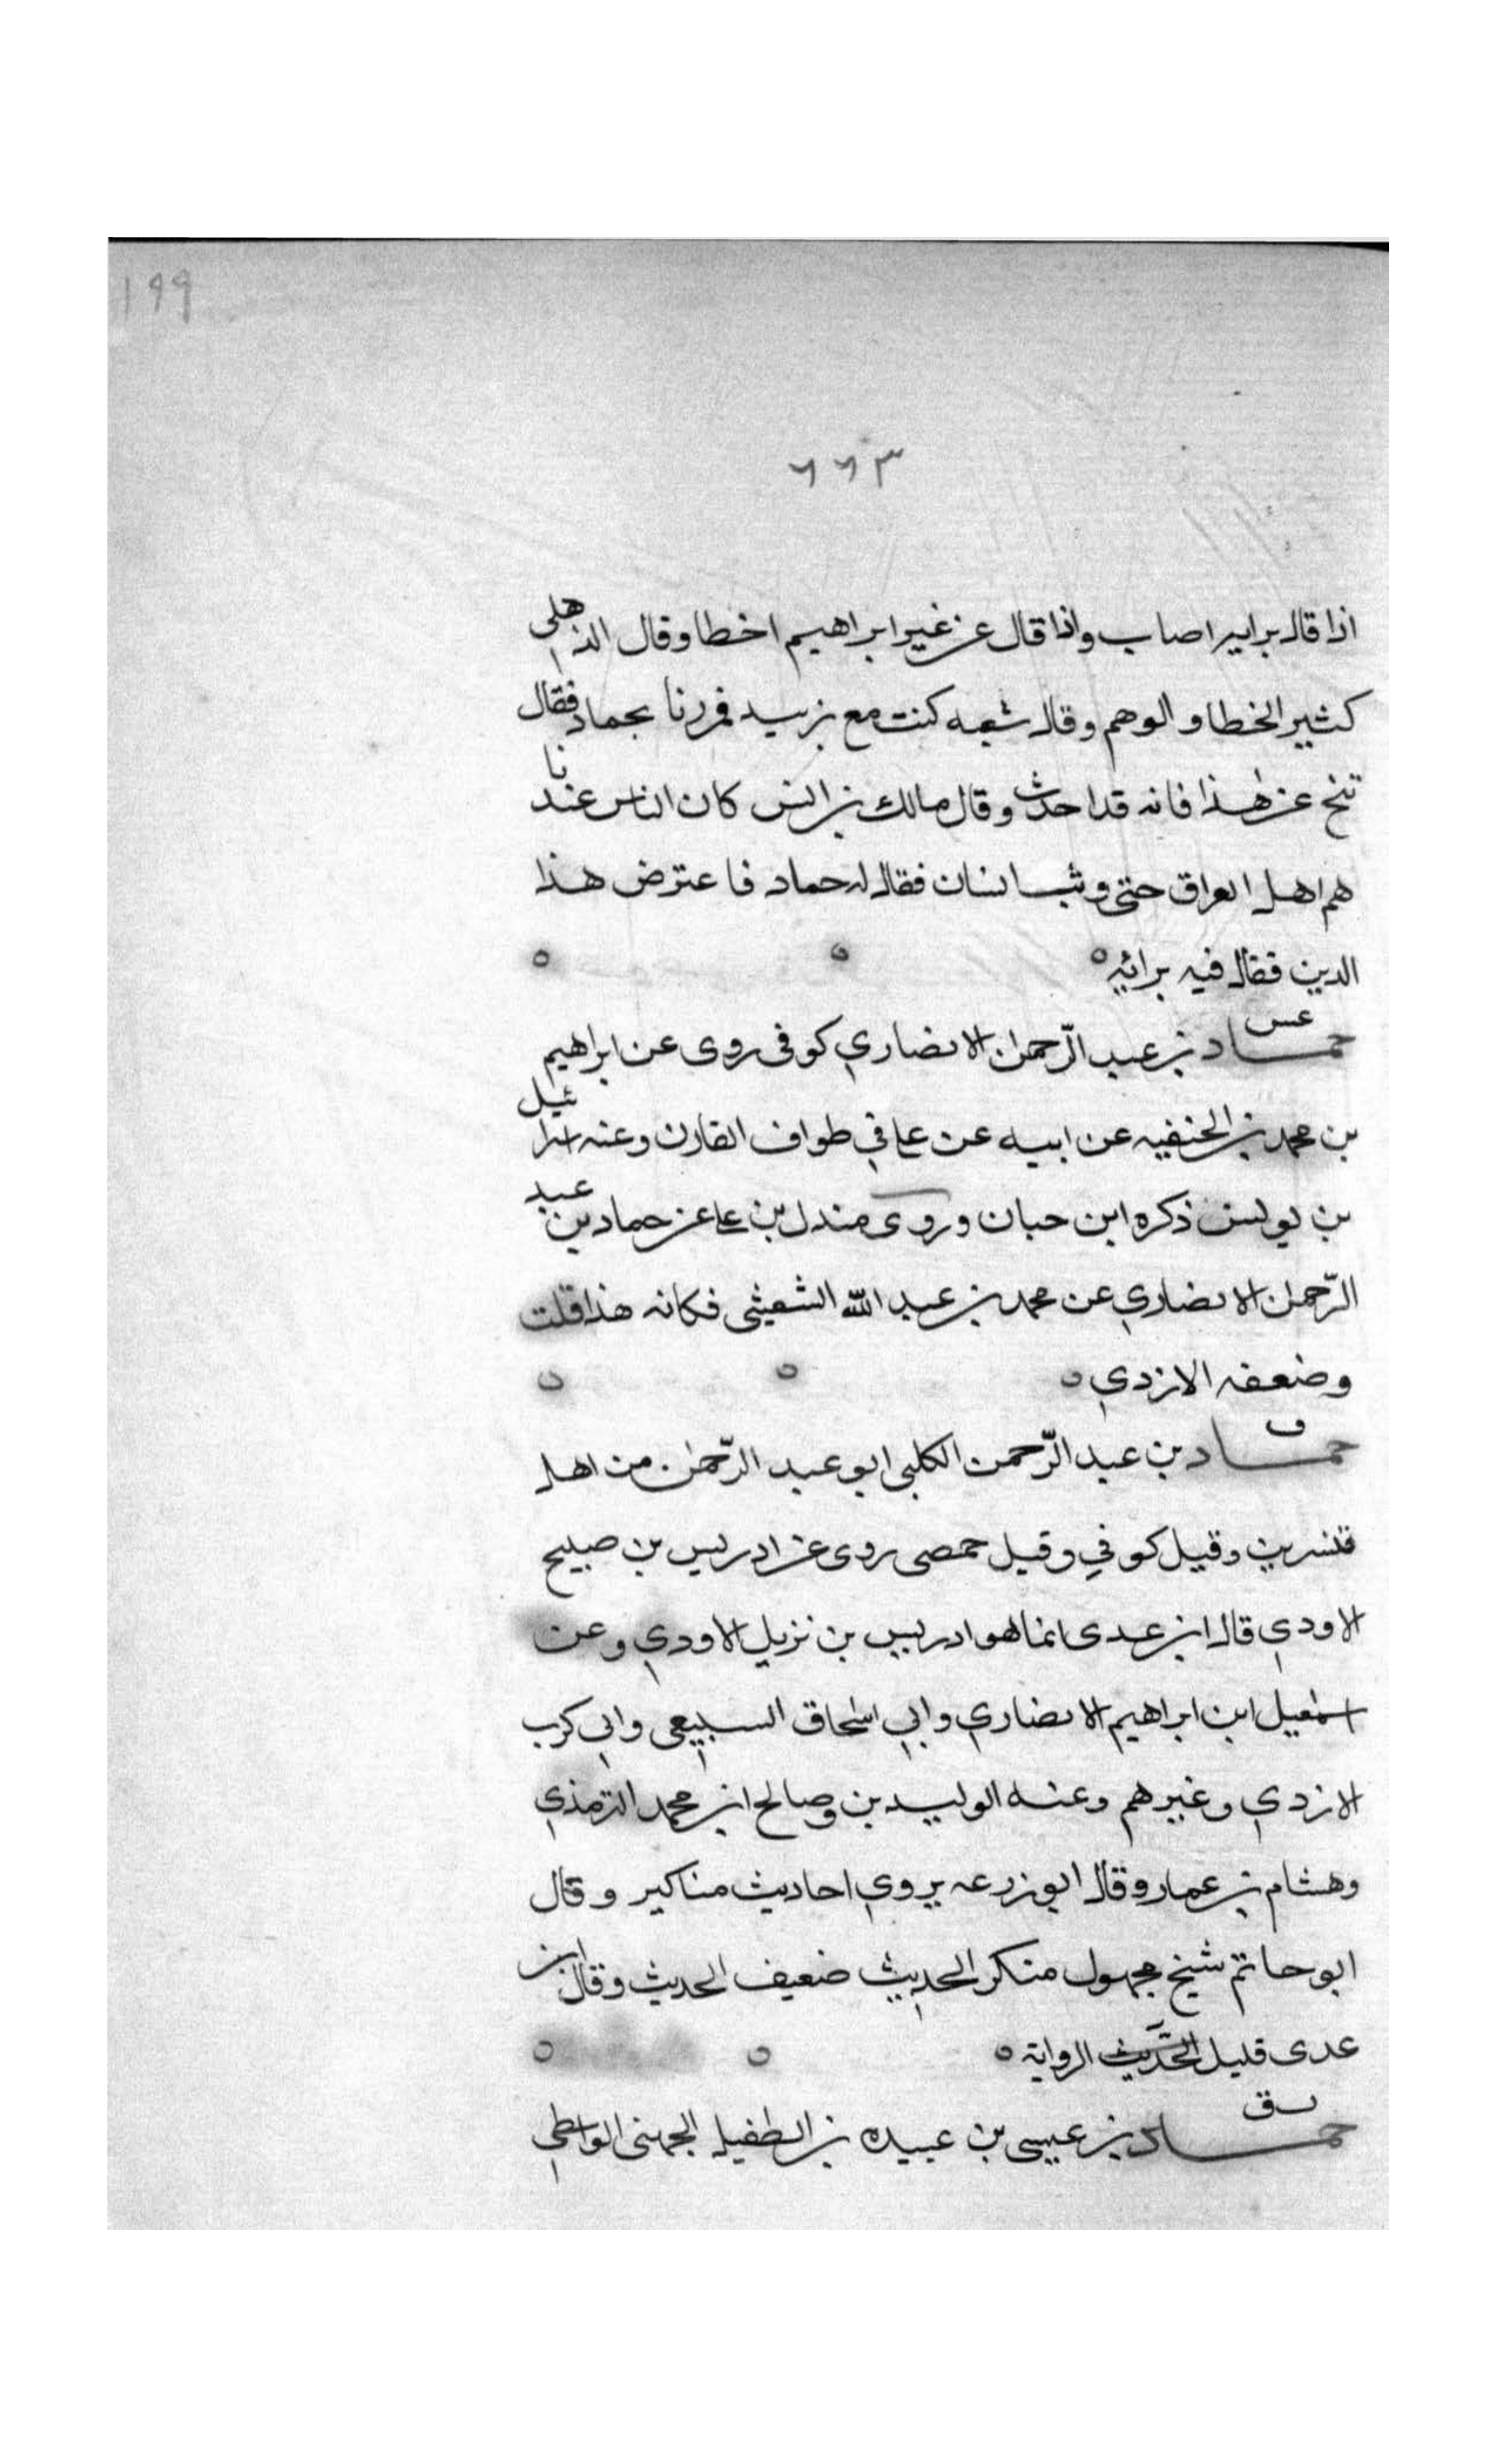 ١٩٩
٦٦٣
اذا قال برايه اصاب واذا قال عن غير ابراهيم اخطا وقال الذهلي
كثير الخطا والوهم وقال شعبه كنت مع زبيد فمررنا بحماد فقال
تنح عن هذا فانه قد احدث وقال مالك بن انس كان الناس عندنا
هم اهل العراق حتى وثب انسان فقال له حماد فاعترض هذا
الدين فقال فيه برائه
عس
حماد بن عبد الرّحمن الانصاري كوفى روى عن ابراهيم
بن محمد بن الحنفيه عن ابيه عن علي في طواف القارن وعنه اسرائيل
بن يونس ذكره ابن حبان وروى مندل بن علي عن حماد بن عبد
الرّحمن الانصاري عن محمد بن عبد الله الشعيثى فكانه هذا قلت
وضعفه الازدي
ق
حماد بن عبد الرّحمن الكلبى ابو عبد الرّحمن من اهل
قنسرين وقيل كوفي وقيل حمصى روى عن ادريس بن صبيح
الاودي قال ابن عدى انما هو ادريس بن نزيل الاودي وعن
اسمعيل ابن ابراهيم الانصاري وابي اسحاق السبيعى وابى كرب
الازدي وغيرهم وعنه الوليد بن وصالح ابن محمد الترمذي
وهشام بن عمار وقال ابو زرعه يروي احاديث مناكير وقال
ابو حاتم شيخ مجهول منكر الحديث ضعيف الحديث وقال ابن
عدى قليل الحديث الرواية
سق
حماد بن عيسى بن عبيده بن الطفيل الجهنى الواسطي